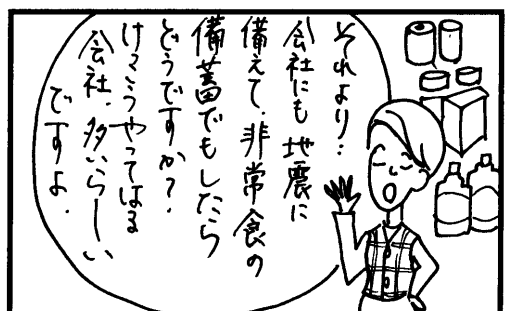 それより‥
会社にも地震に
備えて、非常食の
備蓄でもしたら
どうですか？.
けっこうやってはる
会社、多いらしい
ですよ.